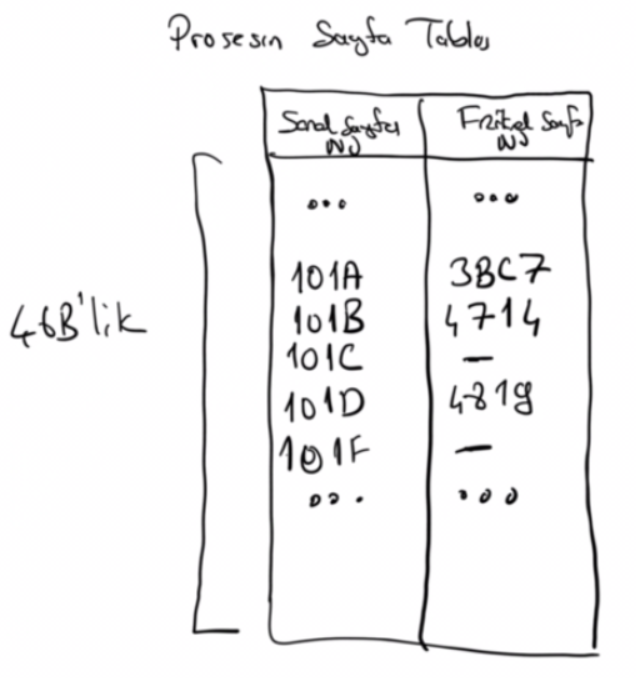 Prosesin Sayfa Tablosu
Sanal Sayfa No
Fiziksel Sayfa No
... ...
101A 3BC7
101B 4714
4GB'lik
101C —
101D 4819
101F —
... ...